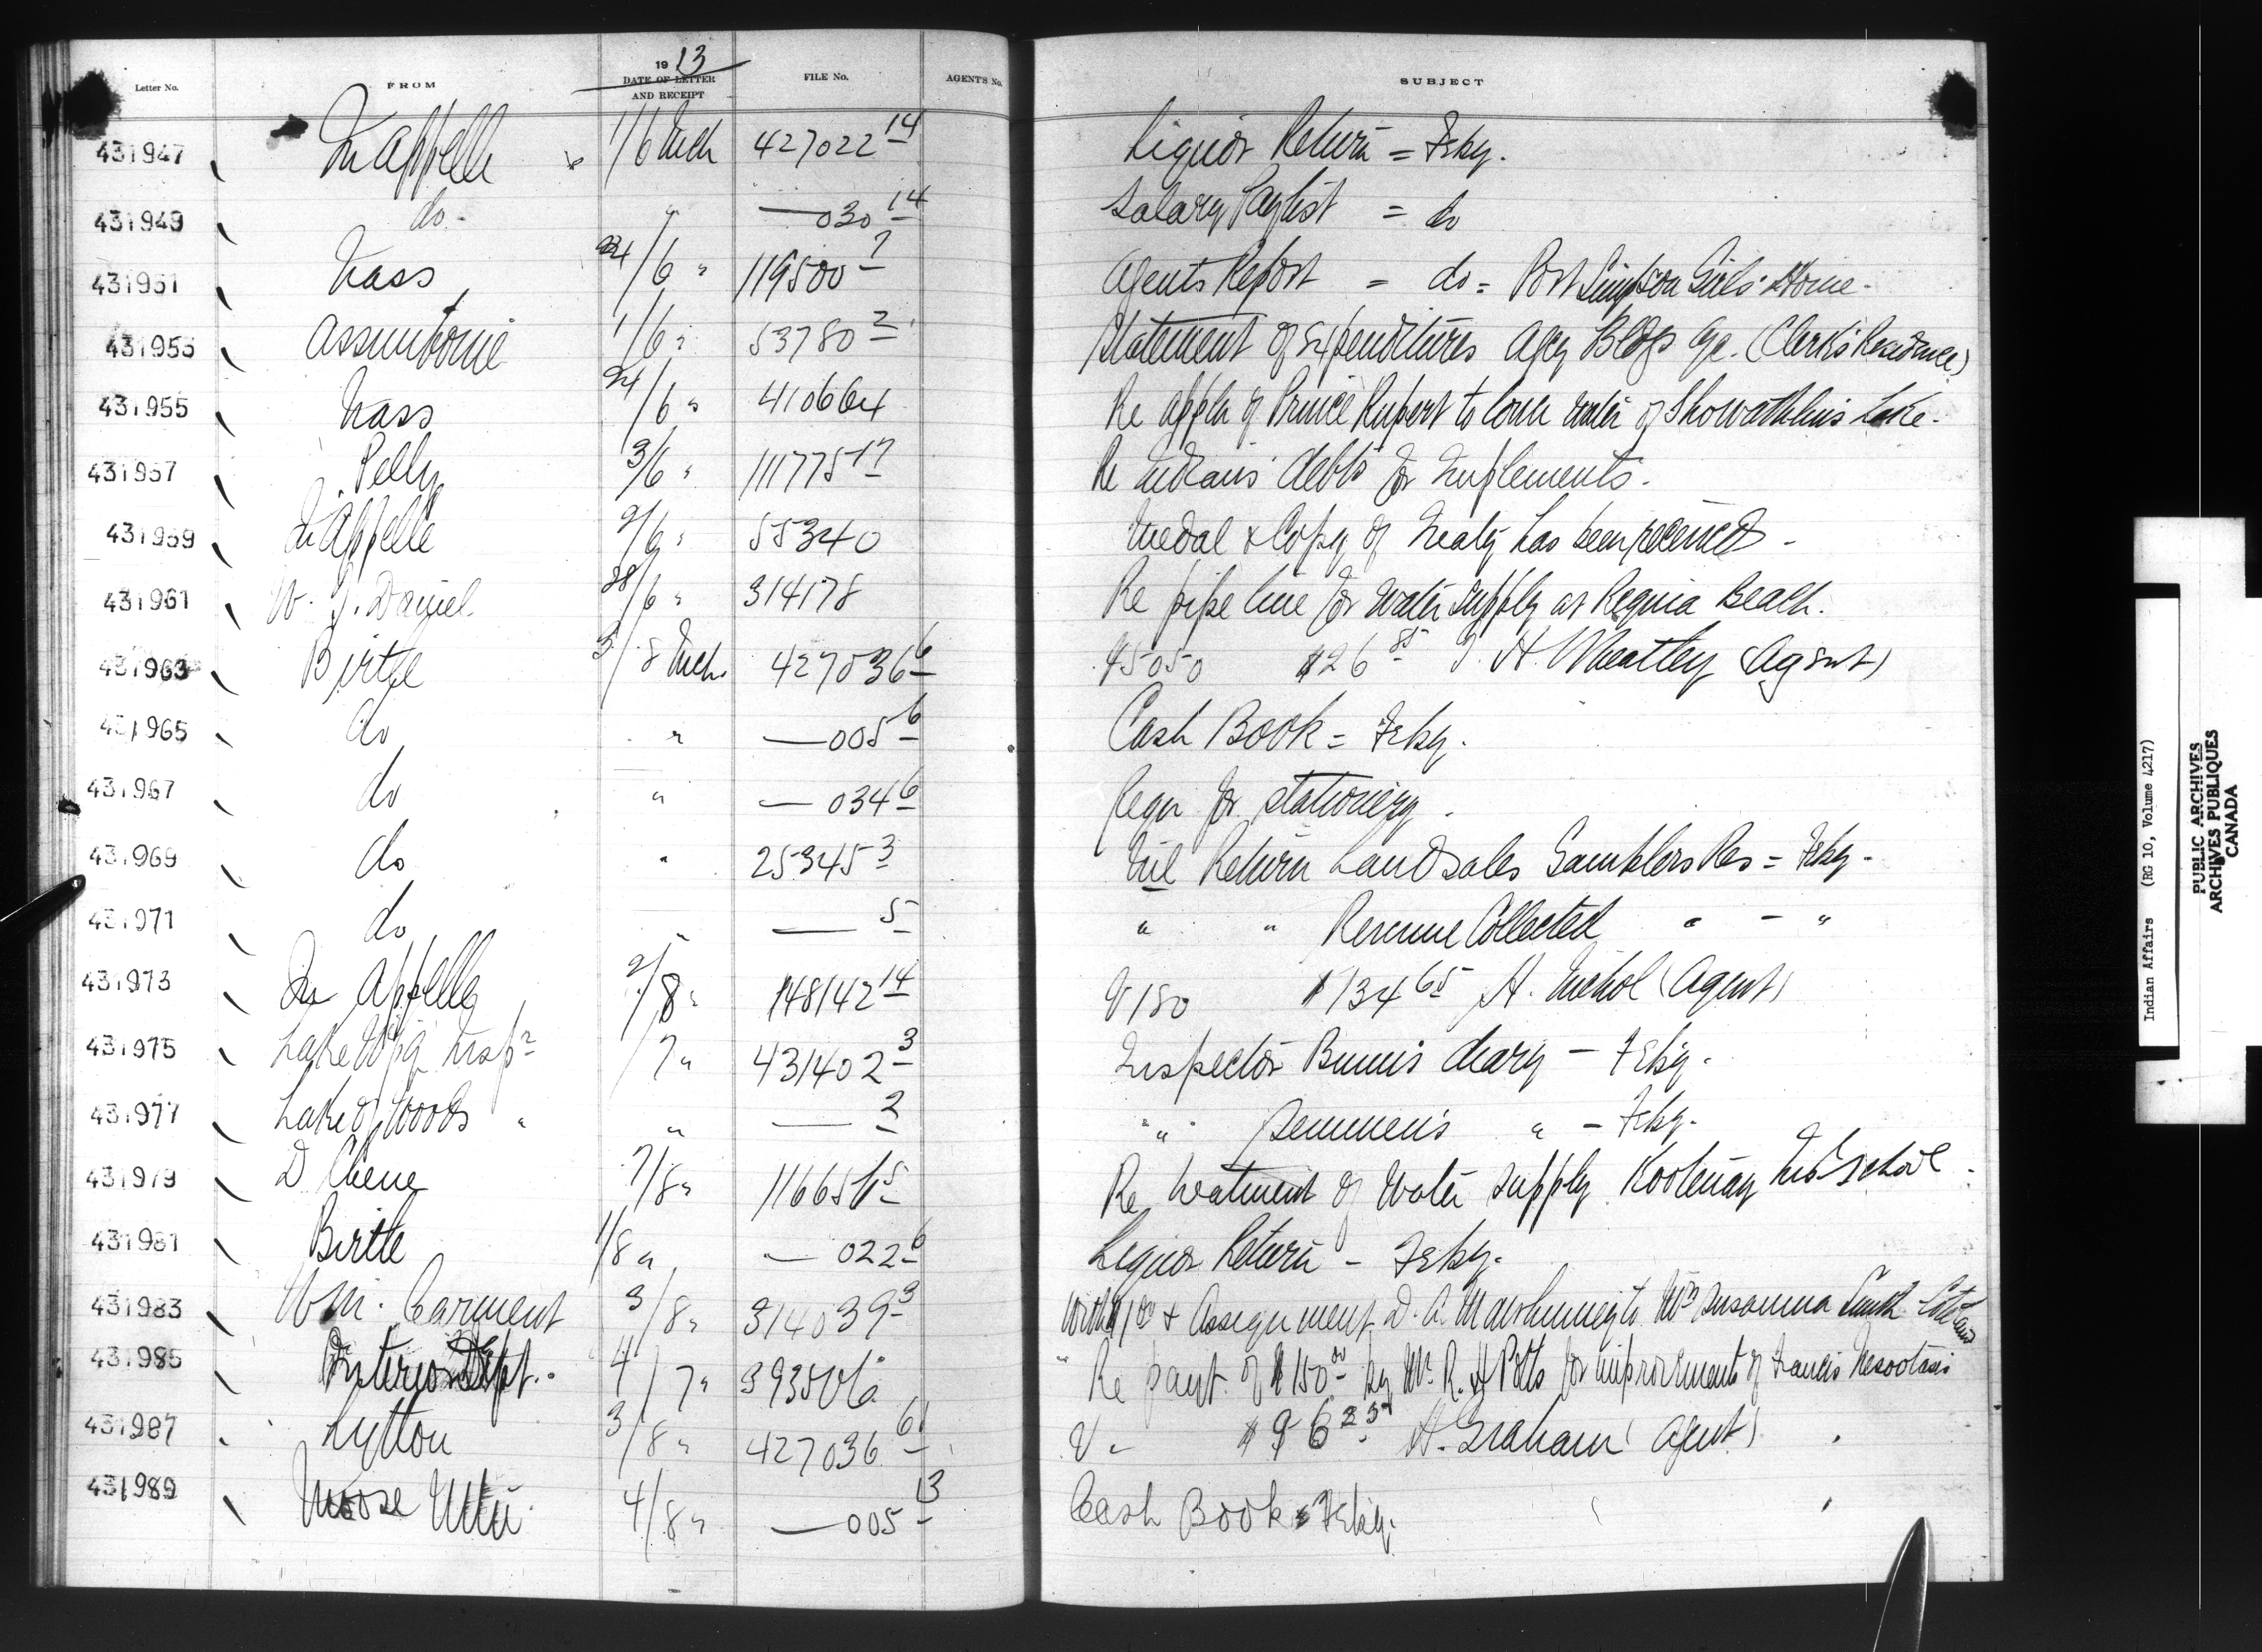 Letter No. FROM 1913 DATE OF LETTER AND RECEIPT FILE No. AGENT'S No. SUBJECT
431947 Qu'Appelle 1/6 Mch 427022 14 Liquor Return = Feby.
431949 do. " —030 14 Salary Paylist = do
431951 Nass 24/6 " 119500 7 Agents Report = do = Port Simpson Girls' Home.
431953 Assiniboine 1/6 " 53780 2 Statement of Expenditures Agcy Bldgs &c. (Clerk's Residence)
431955 Nass 24/6 " 410664 Re appln of Prince Rupert to lower water of Shawatlans Lake.
431957 Pelly 3/6 " 111775 17 Re Indians' debts for Implements.
431959 Qu'Appelle 2/6 " 55340 Medal & Copy of Treaty has been received.
431961 W. J. Daniel 28/6 " 314178 Re pipe line for water supply at Regina Beach.
431963 Birtle 3/8 Mch. 427036 6 $26 85 G. H. Wheatley (Agent)
431965 do " —005 6 Cash Book = Feby.
431967 do " —034 6 Reqn for stationery.
431969 do " 25345 3 Nil Return Land sales Gamblers Res = Feby.
431971 do " — 5 " " Revenue Collected " - "
431973 Qu'Appelle 2/8 " 148142 14 V180 $134 65 H. Nichol (Agent)
431975 Lake Wpg Insp r /7 " 431402 3 Inspector Bunn's diary — Feby.
431977 Lake of Woods " " — 2 " " Semmens " — Feby.
431979 D Chene 7/8 " 116656 5 Re treatment of water supply Kootenay Ind School.
431981 Birtle 1/8 " —022 6 Liquor Return — Feby.
431983 Wm. Carment 3/8 " 314039 3 With $1 00 & Assignment D. A. to Mrs Susanna Smith
431985 Interior Dept. 4/7 " Re paymt. of $150 00 by Mr. R. H Potts for improvements of Francis
431987 Lytton 3/8 " 427036 61 V " $96 23 H. Graham (Agent)
431989 Moose Mtn 4/8 " —005 13 Cash Book = Feby.
Indian Affairs (RG 10, Volume 4217)
PUBLIC ARCHIVES
ARCHIVES PUBLIQUES
CANADA